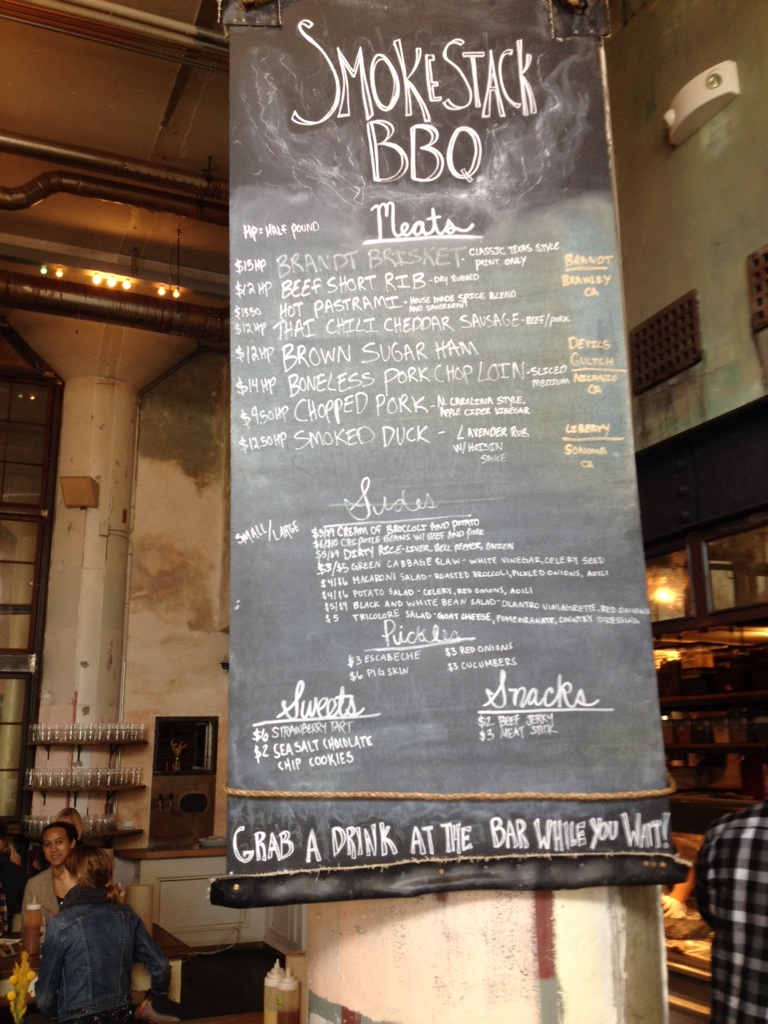 SMOKESTACK
BBQ
HP = HALF POUND
Meats
$15 HP BRANDT BRISKET - CLASSIC TEXAS STYLE
POINT ONLY
BRANDT
$12 HP BEEF SHORT RIB - DRY RUBBED
BRAWLEY
CA
$13.50 HOT PASTRAMI - HOUSE MADE SPICE BLEND
$12 HP THAI CHILI CHEDDAR SAUSAGE - BEEF/PORK
$12 HP BROWN SUGAR HAM
DEVILS
GULTCH
$14 HP BONELESS PORK CHOP LOIN - SLICED
MEDIUM
CA
$9.50 HP CHOPPED PORK - N. CAROLINA STYLE,
APPLE CIDER VINEGAR
$12.50 HP SMOKED DUCK - LAVENDER RUB
W/ HOISIN
SAUCE
LIBERTY
SONOMA
CA
Sides
SMALL/LARGE
$5/$9 CREAM OF BROCCOLI AND POTATO
$6/$10 CHIPOTLE BEANS W/ BEEF AND PORK
$5/$9 DIRTY RICE - LIVER, BELL PEPPER, ONION
$3/$5 GREEN CABBAGE SLAW - WHITE VINEGAR, CELERY SEED
$4/$6 MACARONI SALAD - ROASTED BROCCOLI, PICKLED ONIONS, AOILI
$4/$6 POTATO SALAD - CELERY, RED ONIONS, AOILI
$5/$9 BLACK AND WHITE BEAN SALAD - CILANTRO VINIAGRETTE, RED ONIONS
$5 TRICOLORE SALAD - GOAT CHEESE, POMEGRANATE, COUNTRY DRESSING
Pickles
$3 ESCABECHE $3 RED ONIONS
$6 PIG SKIN $3 CUCUMBERS
Sweets
$6 STRAWBERRY TART
$2 SEA SALT CHOCOLATE
CHIP COOKIES
Snacks
$2 BEEF JERKY
$3 MEAT STICK
GRAB A DRINK AT THE BAR WHILE YOU WAIT!